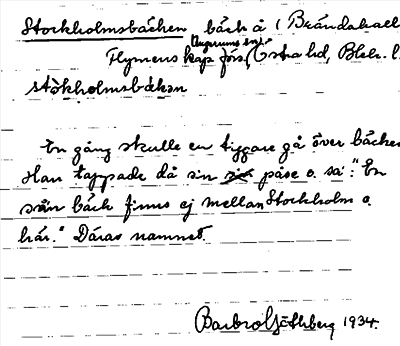 Stockholmsbäcken bäck å (Brändahall
Augerums sn,
Flymens kap.förs, Östra hd, Blek. l.
stòkholmsbäkan
En gång skulle en tiggare gå över bäcken
Han tappade då sin påse o. sa: "En
sån bäck finns ej mellan Stockholm o.
här." Därav namnet.
Barbro Göthberg 1934.